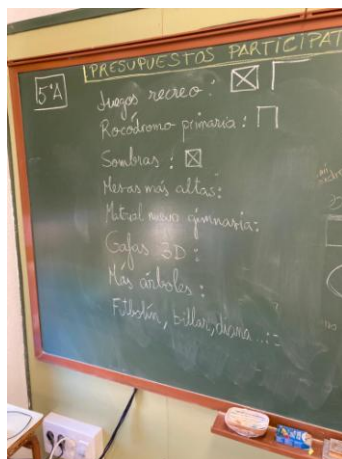 PRESUPUESTOS PARTICIPAT
5ºA
Juegos recreo:
Rocódromo primaria:
Sombras:
Mesas más altas:
Material nuevo gimnasia:
Gafas 3D:
Más árboles:
Futbolín, billar, diana...: